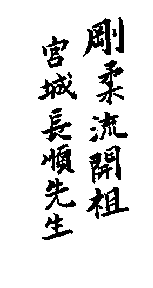 剛柔流開祖
宮城長順先生